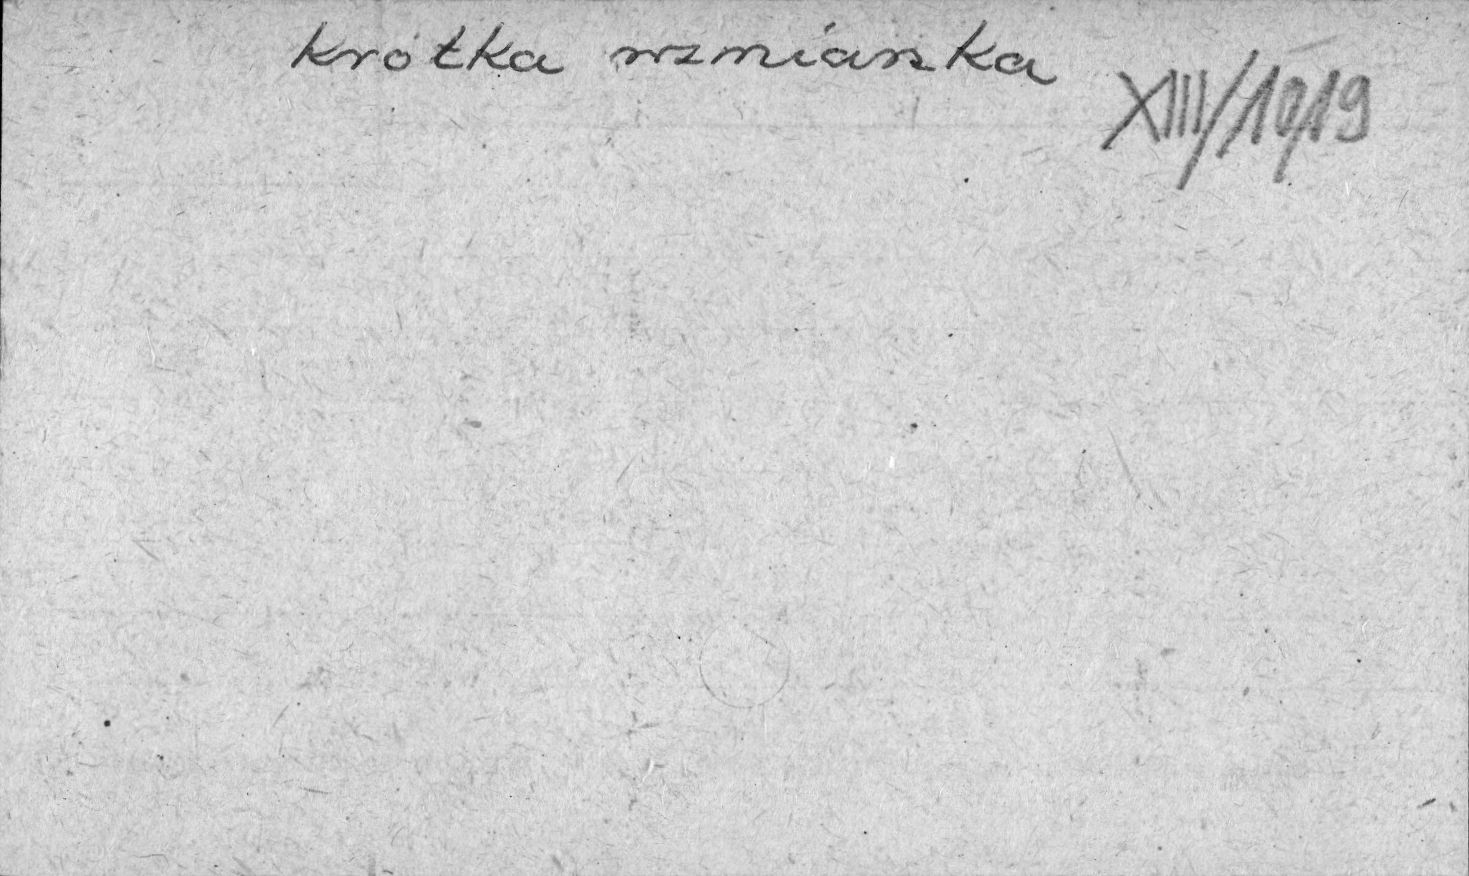 krótka wzmianka
XIII/1019